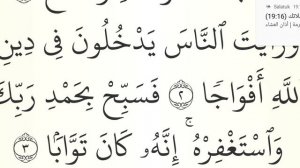 Salatuk 19
(19:16) صلاتك
أذان العشاء
وَرَأَيْتَ ٱلنَّاسَ يَدْخُلُونَ فِى دِينِ
ٱللَّهِ أَفْوَاجًا ٢ فَسَبِّحْ بِحَمْدِ رَبِّكَ
وَٱسْتَغْفِرْهُ ۚ إِنَّهُۥ كَانَ تَوَّابًۢا ٣